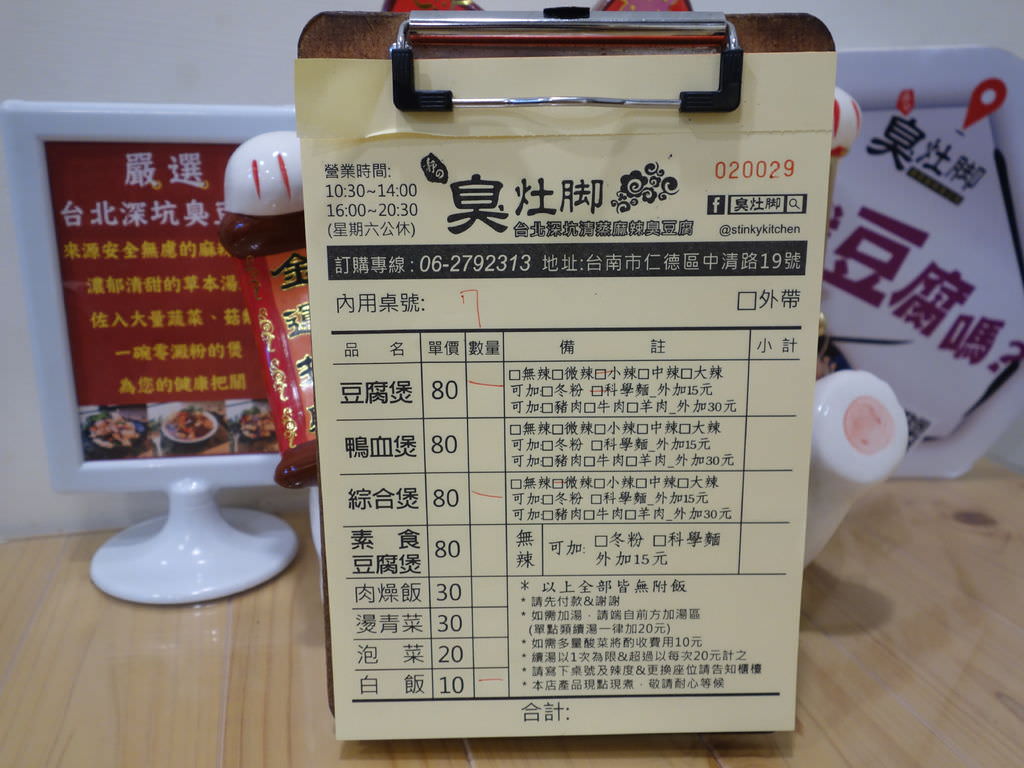 營業時間:
10:30~14:00
16:00~20:30
(星期六公休)
臭灶腳
台北深坑清蒸麻辣臭豆腐
020029
f 臭灶腳
@stinkykitchen
訂購專線:06-2792313 地址:台南市仁德區中清路19號
內用桌號: 7 □外帶
品名 單價 數量 備註 小計
豆腐煲 80 一 □無辣□微辣□小辣□中辣□大辣
可加□冬粉 □科學麵_外加15元
可加□豬肉□牛肉□羊肉_外加30元
鴨血煲 80 □無辣□微辣□小辣□中辣□大辣
可加□冬粉 □科學麵_外加15元
可加□豬肉□牛肉□羊肉_外加30元
綜合煲 80 一 □無辣□微辣□小辣□中辣□大辣
可加□冬粉 □科學麵_外加15元
可加□豬肉□牛肉□羊肉_外加30元
素食豆腐煲 80 無辣 可加: □冬粉 □科學麵
外加15元
肉燥飯 30
燙青菜 30
泡菜 20
白飯 10 一
* 以上全部皆無附飯
* 請先付款&謝謝
* 如需加湯,請端自前方加湯區
(單點類續湯一律加20元)
* 如需多量酸菜將酌收費用10元
* 續湯以1次為限&超過以每次20元計之
* 請寫下桌號及辣度&更換座位請告知櫃檯
* 本店產品現點現煮,敬請耐心等候
合計:
嚴選
台北深坑臭豆
來源安全無慮的麻
濃郁清甜的草本湯
佐入大量蔬菜、菇
一碗零澱粉的煲
為您的健康把關
臭灶腳
豆腐嗎?